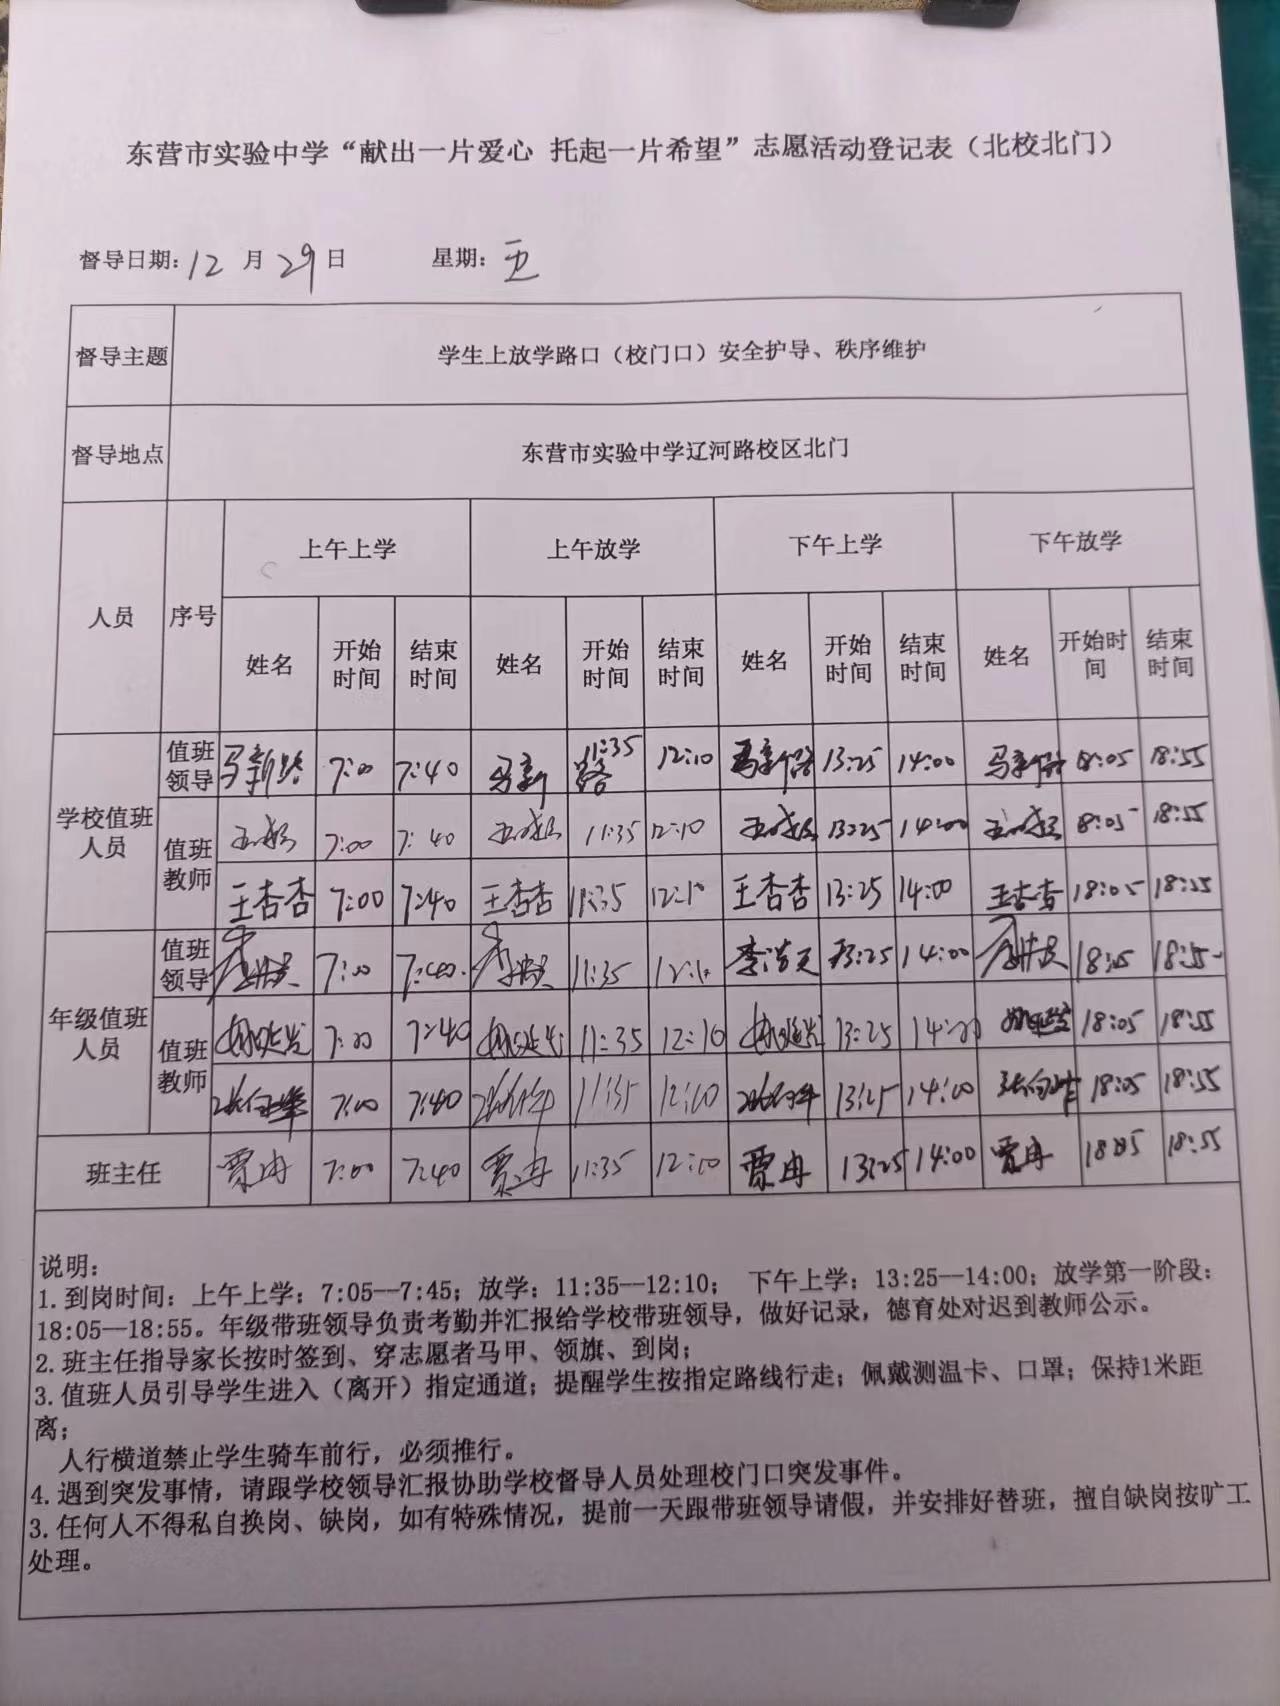 东营市实验中学“献出一片爱心 托起一片希望”志愿活动登记表（北校北门）
督导日期: 12 月 29 日 星期: 五
督导主题 学生上放学路口（校门口）安全护导、秩序维护
督导地点 东营市实验中学辽河路校区北门
人员 序号 上午上学 上午放学 下午上学 下午放学
姓名 开始时间 结束时间 姓名 开始时间 结束时间 姓名 开始时间 结束时间 姓名 开始时间 结束时间
学校值班人员
值班领导 马新路 7:00 7:40 马新路 11:35 12:10 马新路 13:25 14:00 马新路 18:05 18:55
值班教师 7:00 7:40 11:35 12:10 13:25 14:00 8:05 18:55
王杏杏 7:00 7:40 王杏杏 11:35 12:10 王杏杏 13:25 14:00 王杏杏 18:05 18:55
年级值班人员
值班领导 7:00 7:40 11:35 12:10 李浩天 13:25 14:00 18:05 18:55
值班教师 7:00 7:40 11:35 12:10 13:25 14:00 18:05 18:55
7:00 7:40 11:35 12:10 13:25 14:00 18:05 18:55
班主任 贾冉 7:00 7:40 贾冉 11:35 12:10 贾冉 13:25 14:00 贾冉 18:05 18:55
说明:
1.到岗时间: 上午上学: 7:05—7:45; 放学: 11:35—12:10; 下午上学: 13:25—14:00; 放学第一阶段:
18:05—18:55。年级带班领导负责考勤并汇报给学校带班领导，做好记录，德育处对迟到教师公示。
2.班主任指导家长按时签到、穿志愿者马甲、领旗、到岗;
3.值班人员引导学生进入（离开）指定通道; 提醒学生按指定路线行走; 佩戴测温卡、口罩; 保持1米距
离;
人行横道禁止学生骑车前行，必须推行。
4.遇到突发事情，请跟学校领导汇报协助学校督导人员处理校门口突发事件。
3.任何人不得私自换岗、缺岗，如有特殊情况，提前一天跟带班领导请假，并安排好替班，擅自缺岗按旷工
处理。